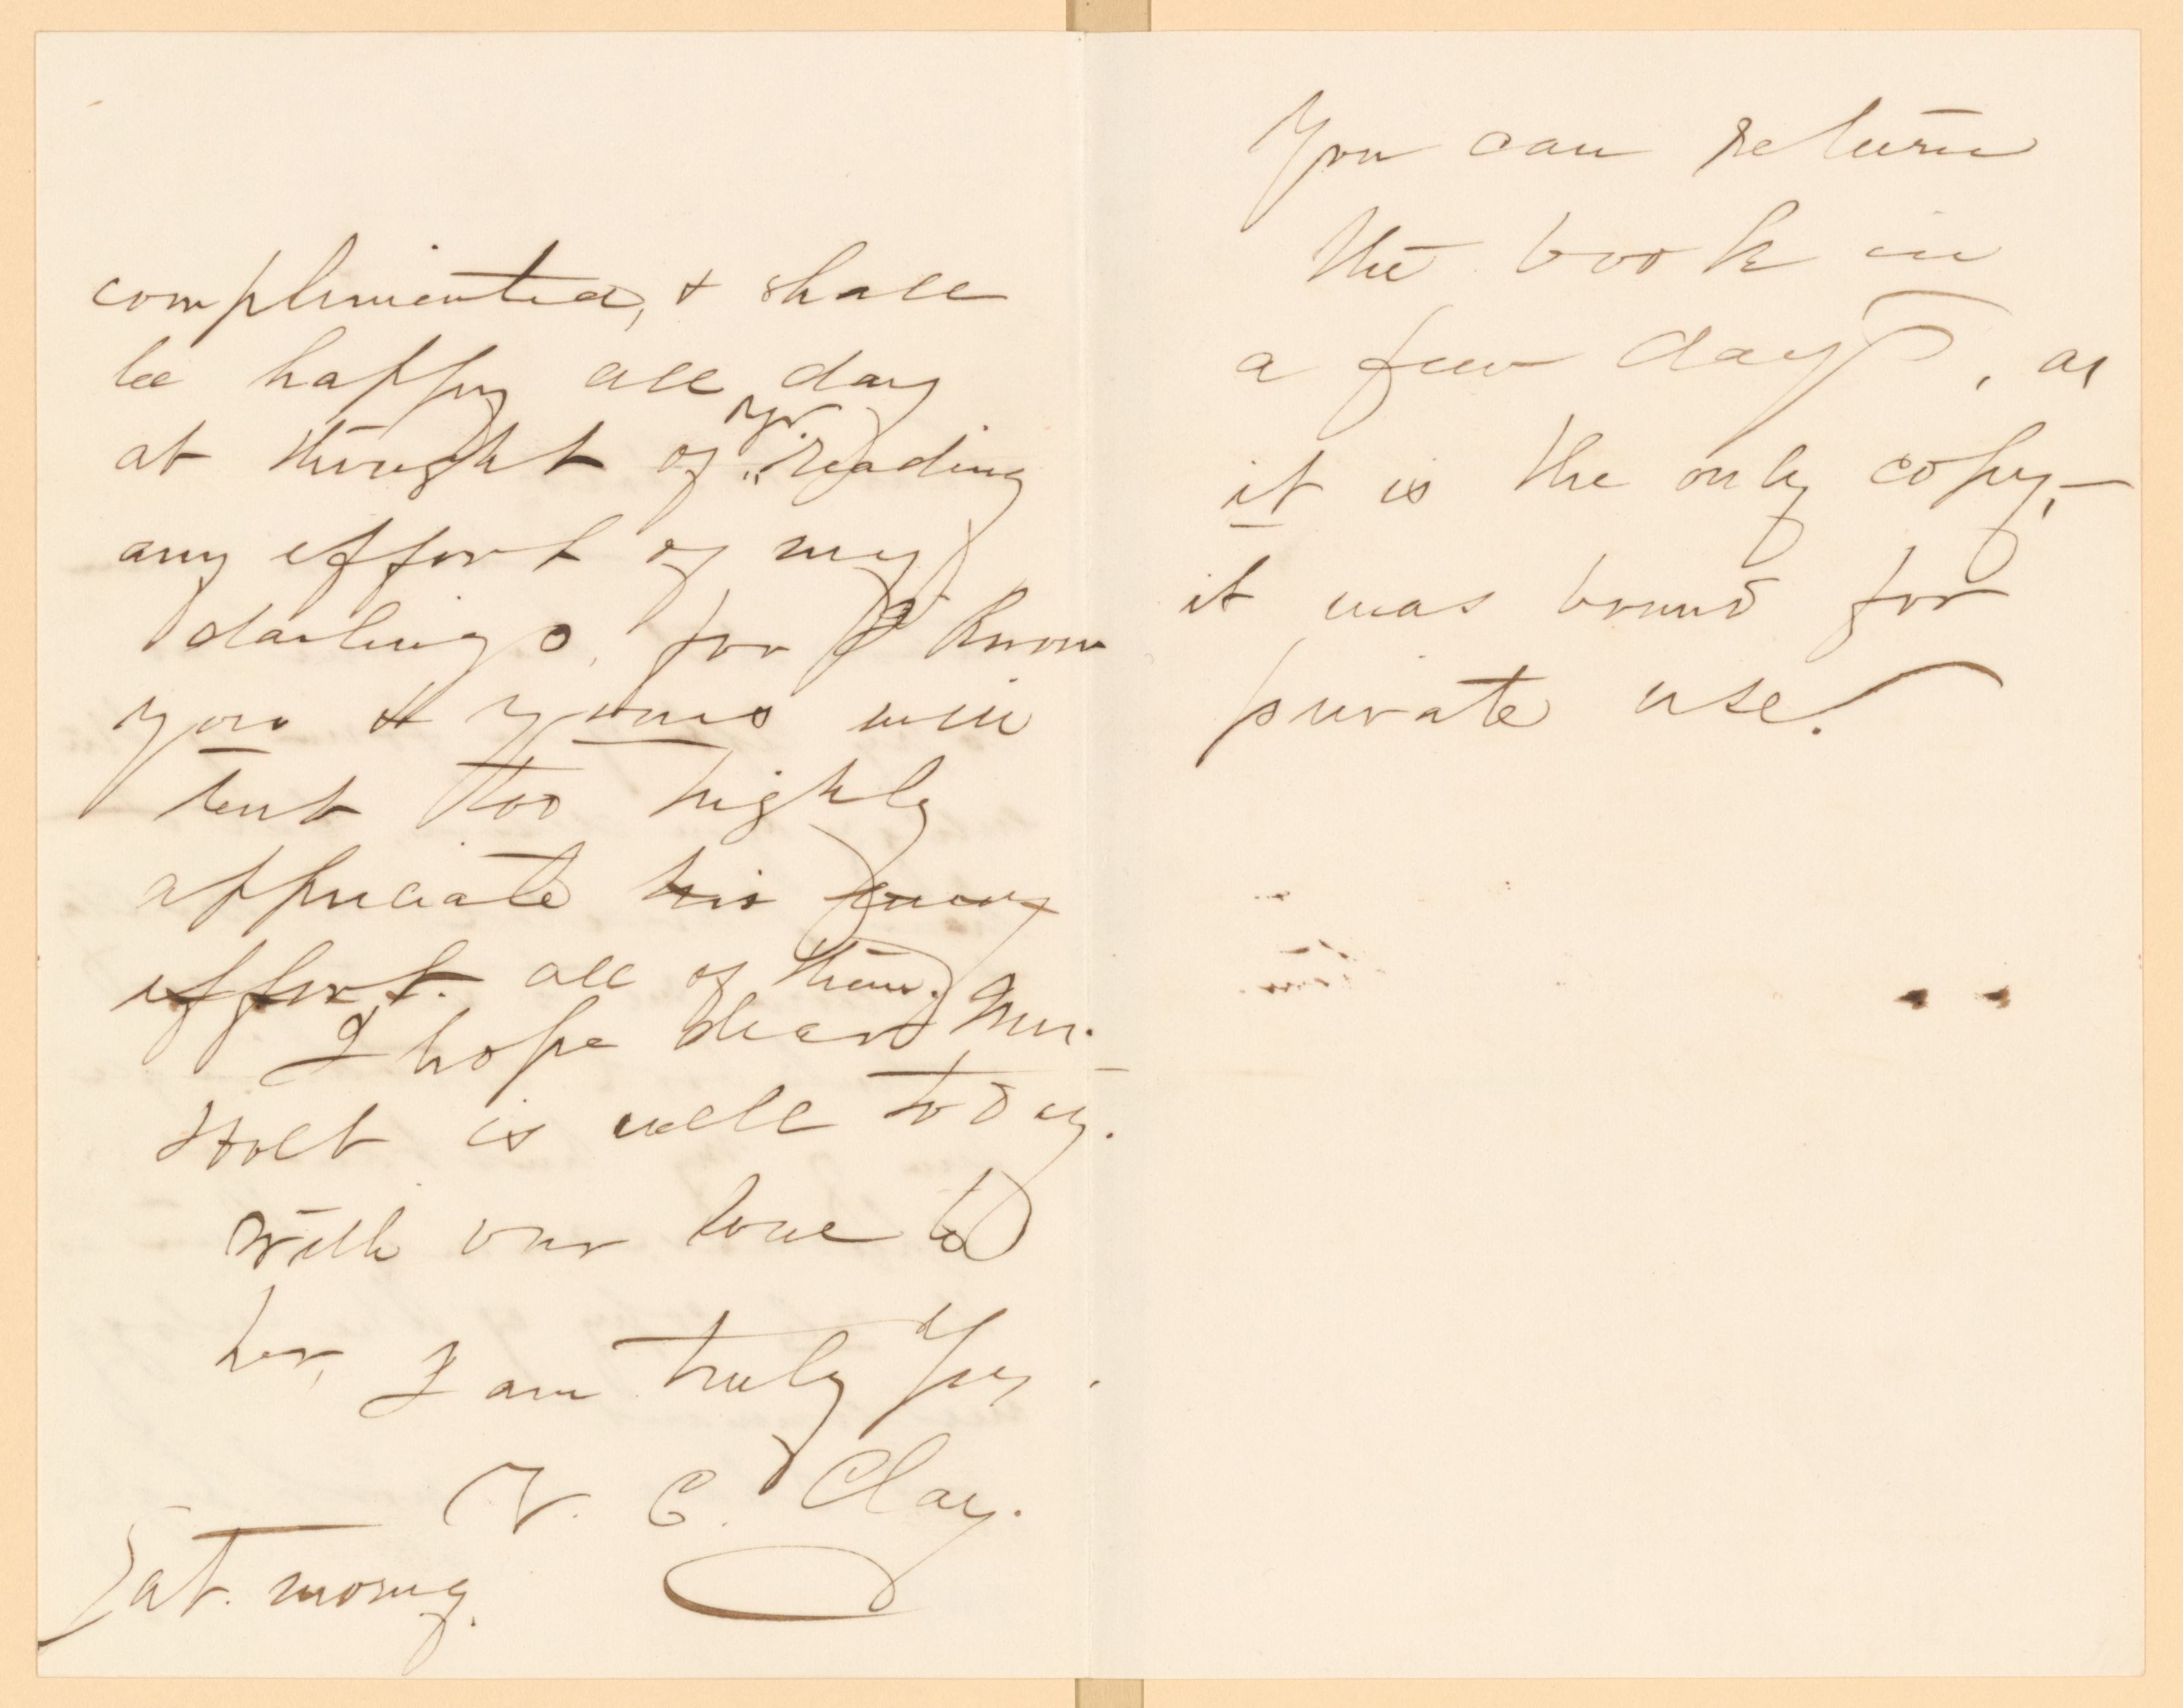 complimented, & shall
be happy all day
at thought of yr. reading
any effort of my
darlings, for I know
you & yours will
but too highly
appreciate his every
effort. all of them.
I hope dear Mrs.
Holt is well to day.
With our love to
her, I am truly Yrs.
V. C. Clay.
Sat. morng.
You can return
the book in
a few days, as
it is the only copy,—
it was bound for
private use.